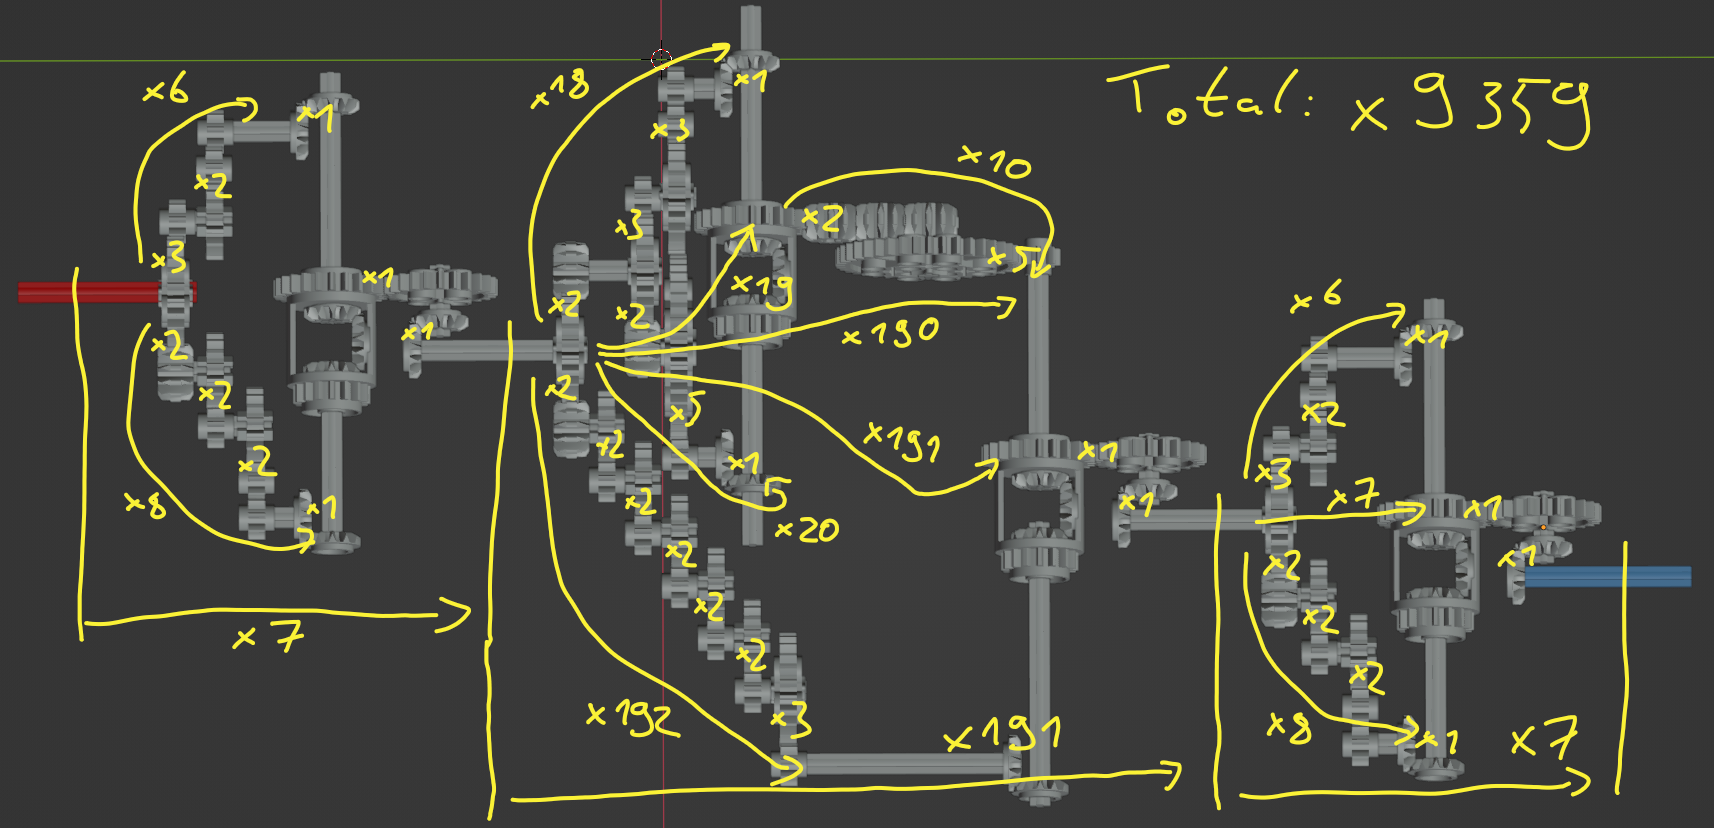 Total: x9359
x6
x1
x2
x3
x1
x1
x2
x2
x2
x8
x1
x7
x18
x1
x3
x10
x3
x2
x5
x19
x2
x2
x190
x2
x5
x191
x2
x1
5
x20
x2
x2
x2
x2
x3
x192
x191
x1
x1
x6
x1
x2
x3
x7
x1
x1
x2
x2
x2
x8
x1
x7